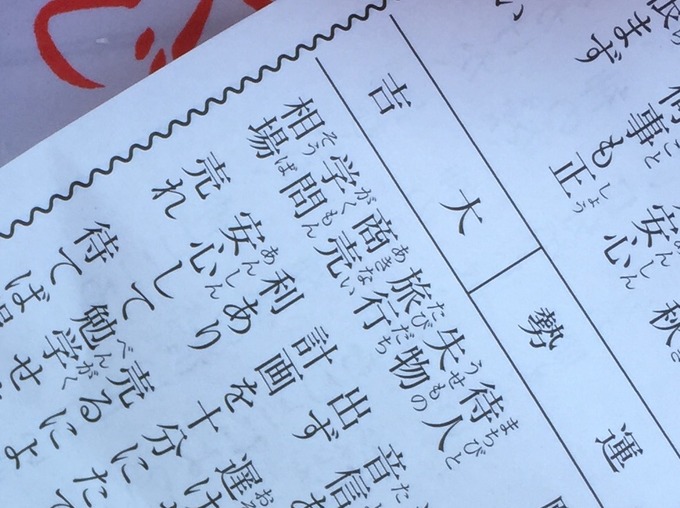 運勢
大吉
まず
事も正
安心
秋
待人 音信あ
失物 出ず 遅
旅行 計画を十分にた
商売 利あり 売るによ
学問 安心して勉学せ
相場 売れ 待てば